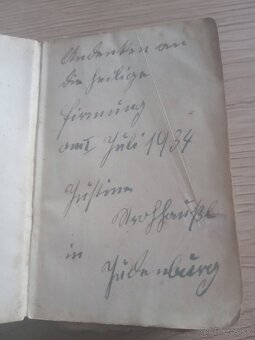 Andenken an
die heilige
Firmung
am 1 Juli 1934
Justine
in
Judenburg